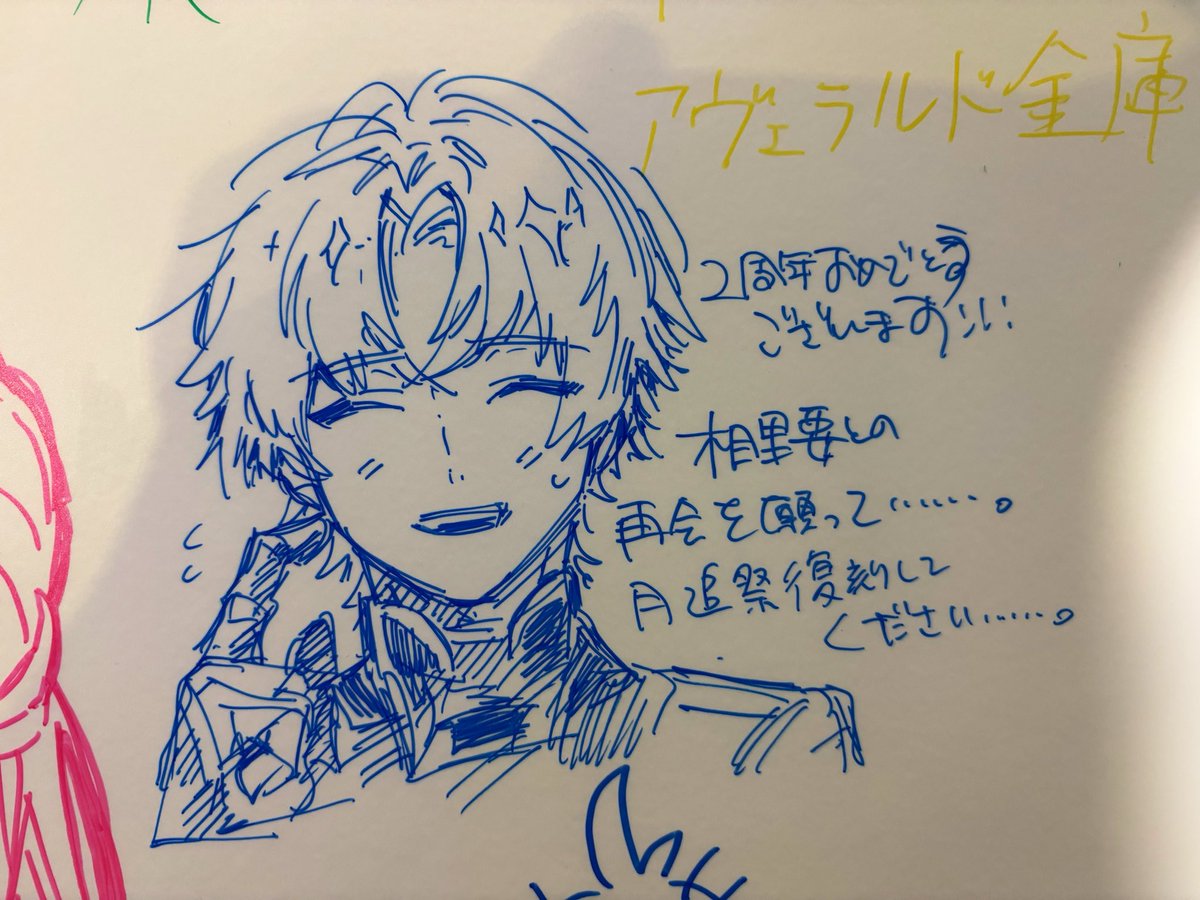 アヴェラルド金庫
2周年おめでとう
ございます!!!
相里要との
再会を願って……。
月追祭復刻して
ください……。